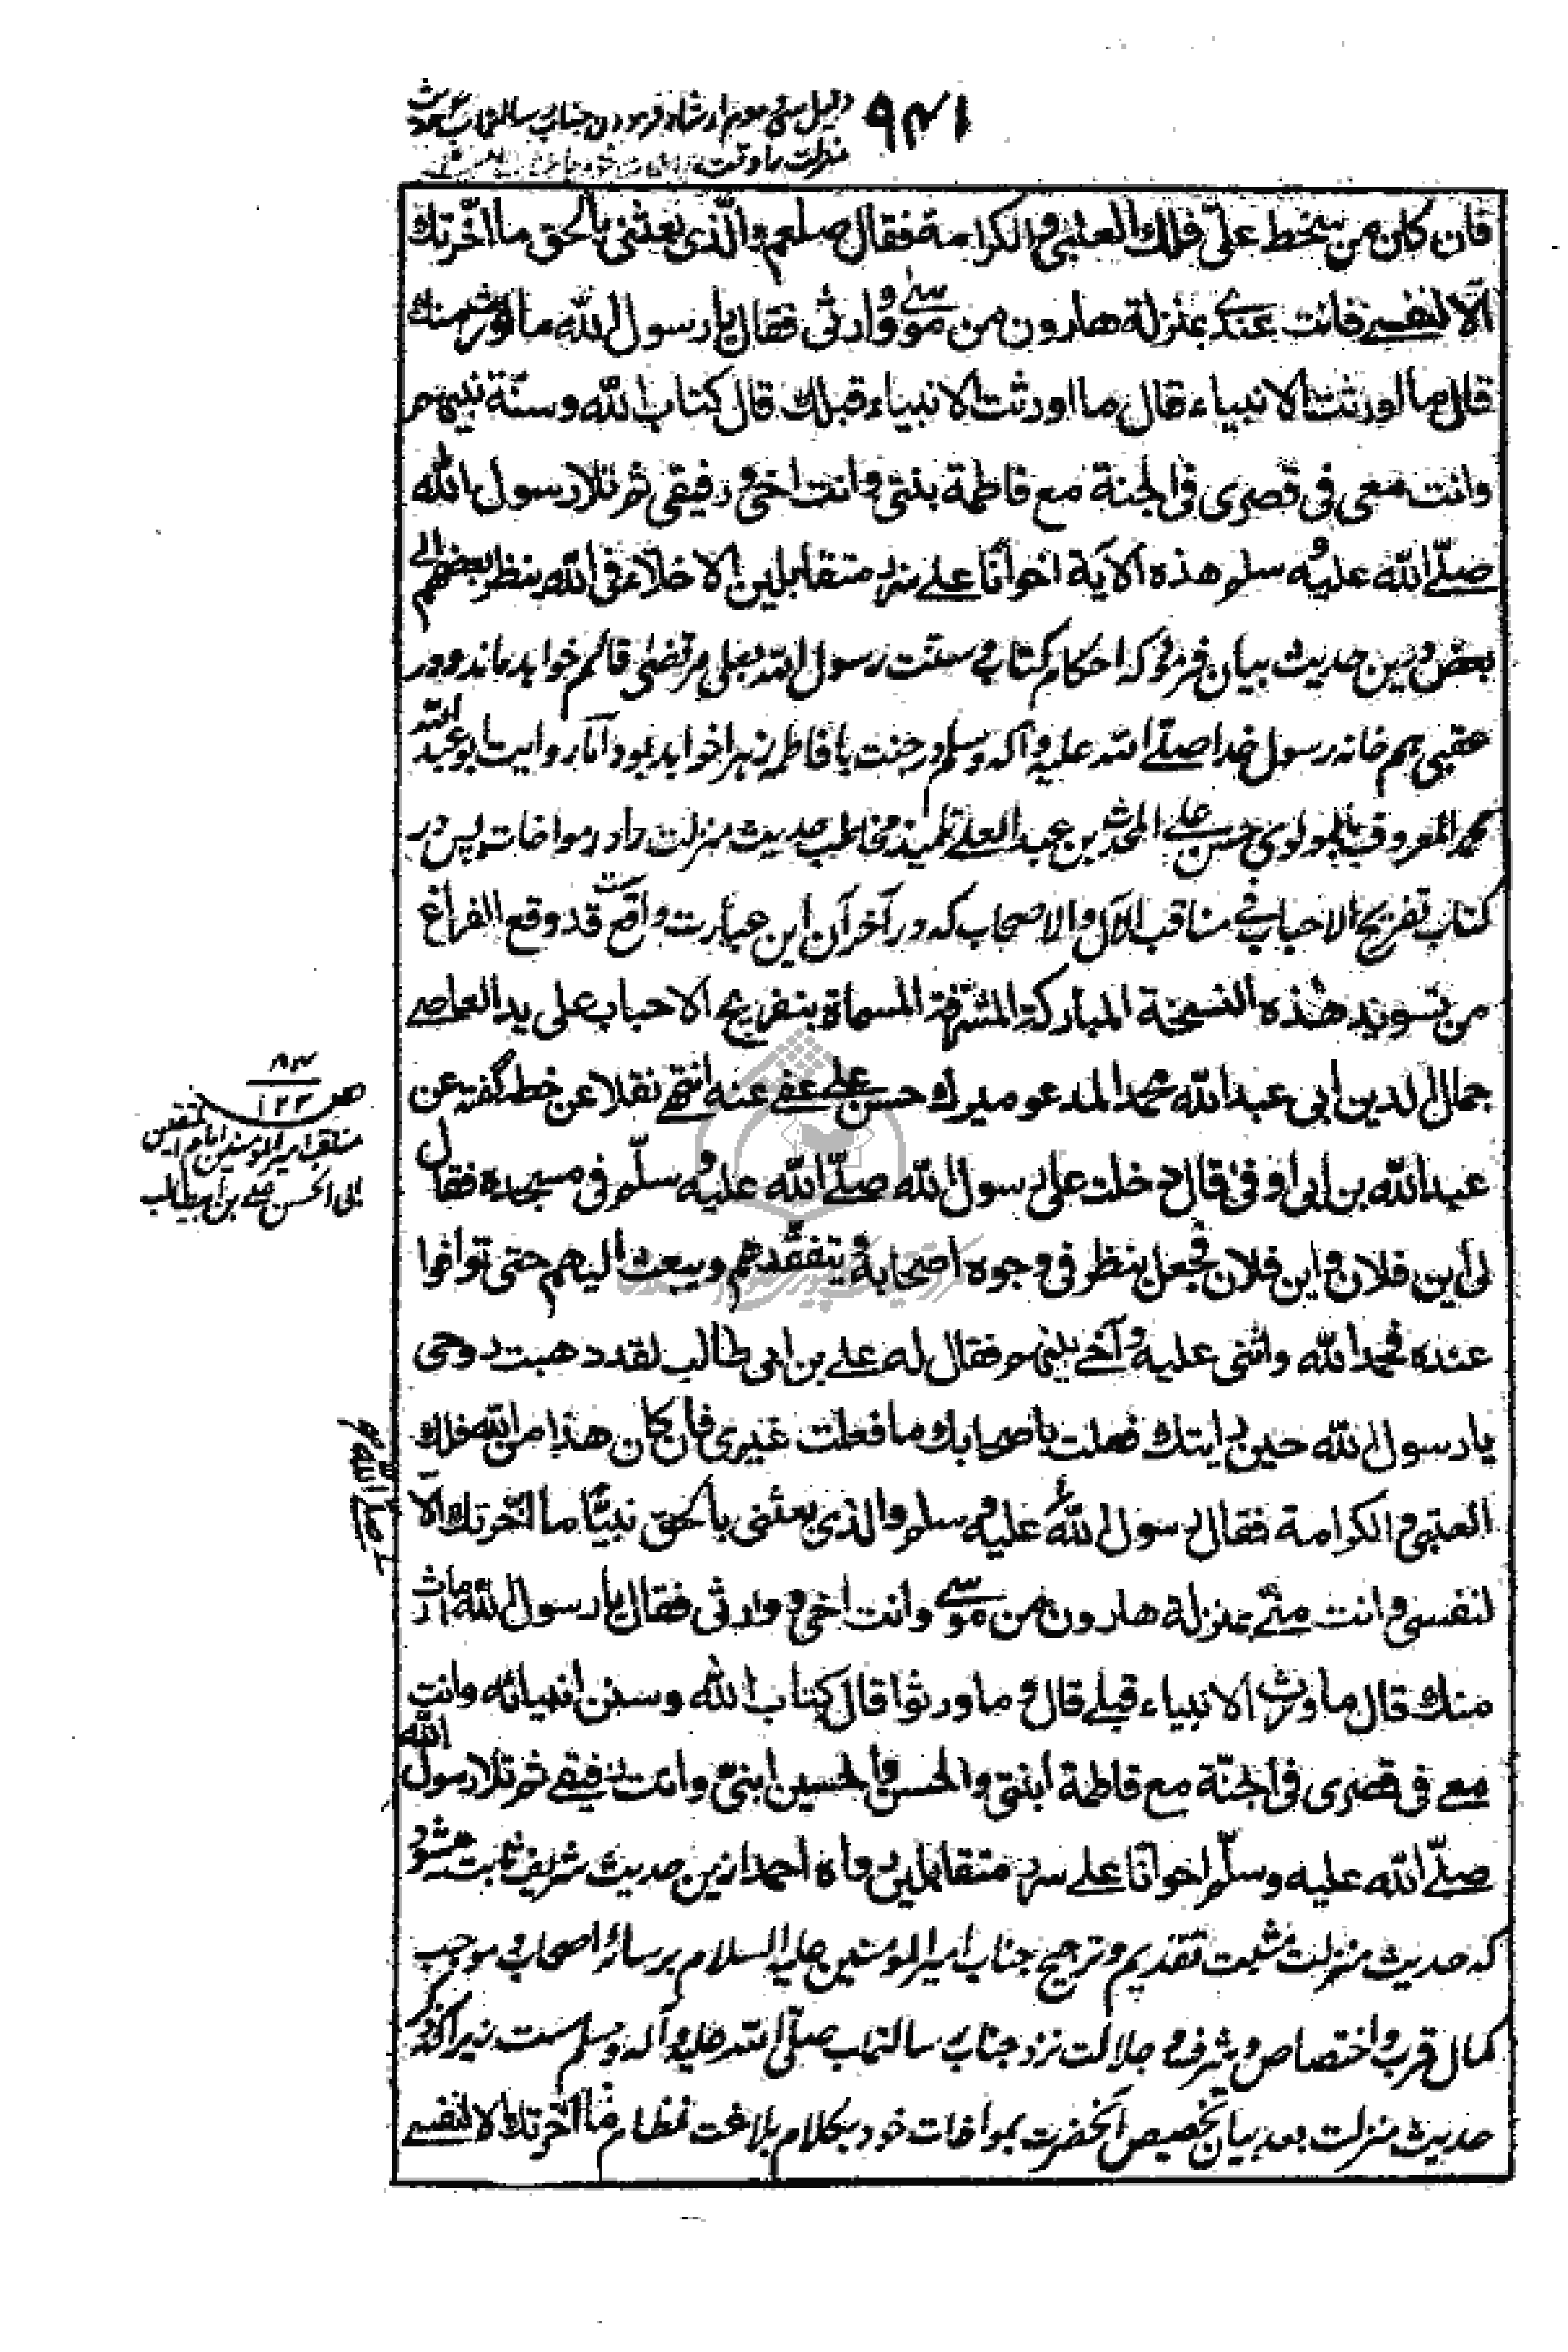 ۹۴۱ دلیل سی و سوم ارشاد فرمودن جناب رسالتمآب حدیث
منزلت را وقت
فان كان من سخط علیّ فلك العتبى والكرامة فقال صلعم والّذى بعثنى بالحق ما اخّرتك
الّا لنفسے فانت عندے بمنزلة هارون من موسےٰ ووارثى فقال يا رسول الله ما اورث منك
قال ما اورثت الانبياء قال ما اورثت الانبياء قبلك قال كتاب الله وسنّة نبيهم
وانت معى فى قصرى فى الجنة مع فاطمة بنتى وانت اخى ورفيقى ثم تلا رسول الله
صلّے الله عليه وسلم هذه الآية اخوانا علے سرر متقابلين الاخلاء فى الله ينظر بعضهم الى
بعض درین حدیث بیان فرمود که احکام کتاب و سنت رسول الله بعلی مرتضیٰ قائم خواهد ماند و در
عقبی هم خانه رسول خدا صلے الله علیه وآله وسلم در جنت با فاطمه زهرا خواهد بود اما روایت ابو عبد الله
محمد المعروف بالمولوی حسن علے المحدث بن عبد العلے تلمیذ مخاطب حدیث منزلت را در مواخات پس در
کتاب تفریح الاحباب فی مناقب الآل والاصحاب که در آخر آن این عبارت واقع ست قد وقع الفراغ
من تسويد هذه النسخة المباركة المشرّفة المسماة بتفريح الاحباب على يد العاصے
جمال الدين ابى عبد الله محمد المدعو ميرك حسن علے عفے عنه انتهے نقلا عن خطه گفته عن
عبد الله بن ابى اوفى قال دخلت على رسول الله صلّے الله عليه وسلّم فى مسجده فقال
لى اين فلان واين فلان فجعل ينظر فى وجوه اصحابه ويتفقّدهم ويبعث اليهم حتى توافوا
عنده فحمد الله واثنى عليه وآخے بينهم فقال له علے بن ابى طالب لقد ذهبت روحى
يا رسول الله حين رايتك فعلت باصحابك ما فعلت غيرى فان كان هذا من الله فلك
العتبى والكرامة فقال رسول الله صلے الله عليه وسلم والذى بعثنى بالحق نبيّا ما اخّرتك الّا
لنفسى وانت منّے بمنزلة هارون من موسےٰ وانت اخى ووارثى فقال يا رسول الله ما ارث
منك قال ما ورث الانبياء قبلے قال وما ورثوا قال كتاب الله وسنن انبيائه وانت
معے فى قصرى فى الجنّة مع فاطمة ابنتى والحسن والحسين ابنىّ وانت رفيقے ثم تلا رسول الله
صلّے الله عليه وسلّم اخوانا علے سرر متقابلين رواه احمد ازین حدیث شریف ثابت میشود
که حدیث منزلت مثبت تقدیم و ترجیح جناب امیرالمومنین علیه السلام بر سائر اصحاب و موجب
کمال قرب و اختصاص و شرف و جلالت نزد جناب رسالتمآب صلّی الله علیه وآله وسلم ست زیرا که ذکر
حدیث منزلت بعد بیان تخصیص آنحضرت بمواخات خود بکلام بلاغت نظام ما اخّرتك الا لنفسے
۸۳
ص ۱۲۳
مناقب امیر المومنین امام المتقین
ابی الحسن علے بن ابیطالب